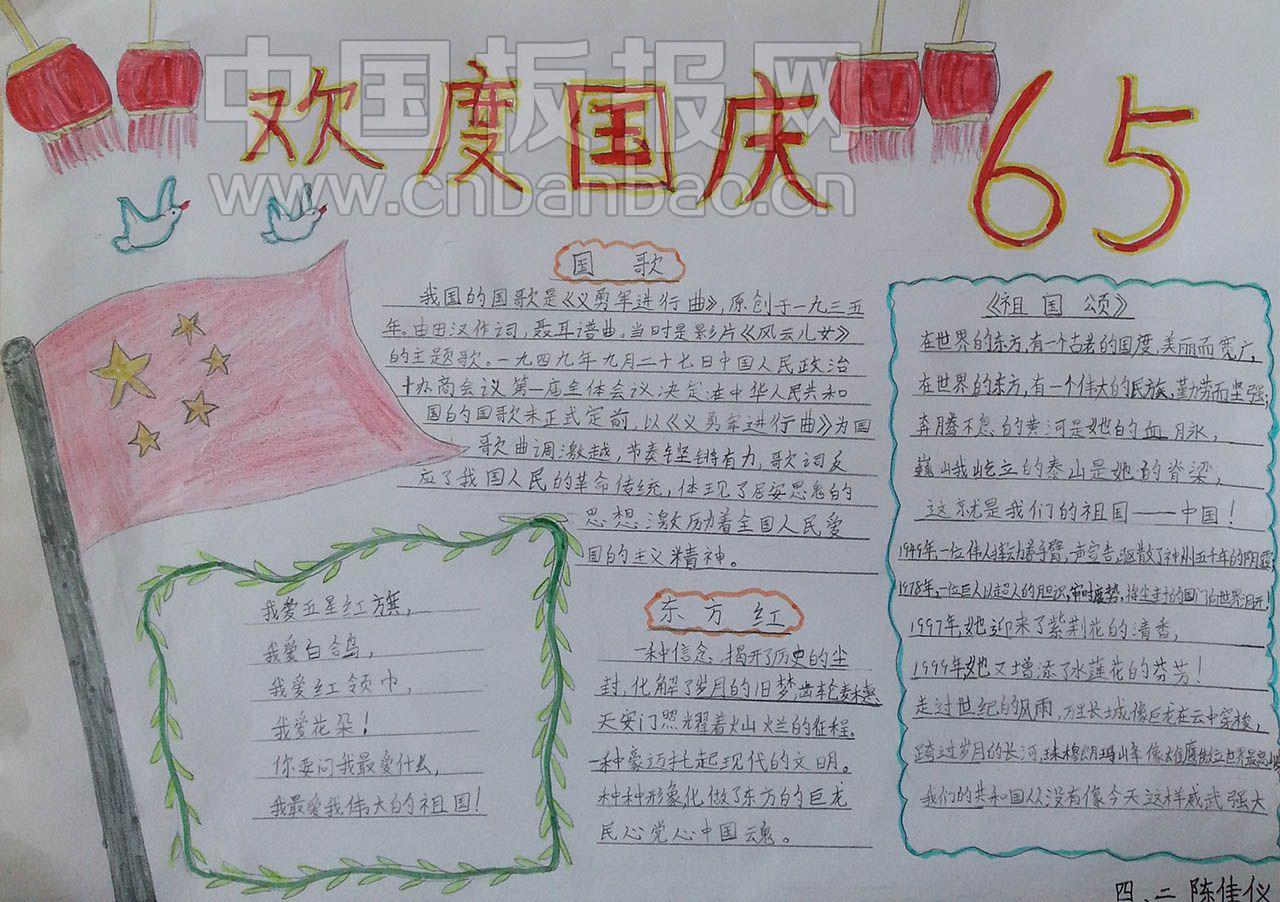 中国板报网
www.cnbanbao.cn
欢度国庆 65
国歌
我国的国歌是《义勇军进行曲》,原创于一九三五
年。由田汉作词,聂耳谱曲。当时是影片《风云儿女》
的主题歌。一九四九年九月二十七日中国人民政治
办商会议第一届全体会议决定:在中华人民共和
国的国歌未正式定前,以《义勇军进行曲》为国
歌曲调激越,节奏铿锵有力,歌词反
应了我国人民的革命传统,体现了居安思危的
思想激励着全国人民爱
国的主义精神。
东方红
一种信念,揭开了历史的尘
封,化解了岁月的旧梦,
天安门照光耀着火山火兰的征程。
一种豪迈托起现代的文明。
种种形象化,做了东方的巨龙
民心党心中国魂。
我爱五星红旗,
我爱白鸽,
我爱红领巾,
我爱花朵!
你要问我最爱什么,
我最爱我伟大的祖国!
《祖国颂》
在世界的东方,有一个古老的国度,美丽而宽广,
在世界的东方,有一个伟大的民族,勤劳而坚强;
奔腾不息的黄河是她的血脉,
巍峨屹立的泰山是她的脊梁,
这就是我们的祖国——中国!
1949年,一位伟人挥动着手臂,声宣告,驱散了神州五千年的阴霾;
1978年,一位巨人以超人的胆识,审时度势,将尘封的国门向世界洞开!
1997年,她迎来了紫荆花的清香,
1999年,她又增添了水莲花的芬芳!
走过世纪的风雨,万里长城像巨龙在云中穿梭,
跨过岁月的长河,珠穆朗玛山峰像雄鹰俯位世界最高
我们的共和国从没有像今天这样威武强大
四.二 陈佳仪